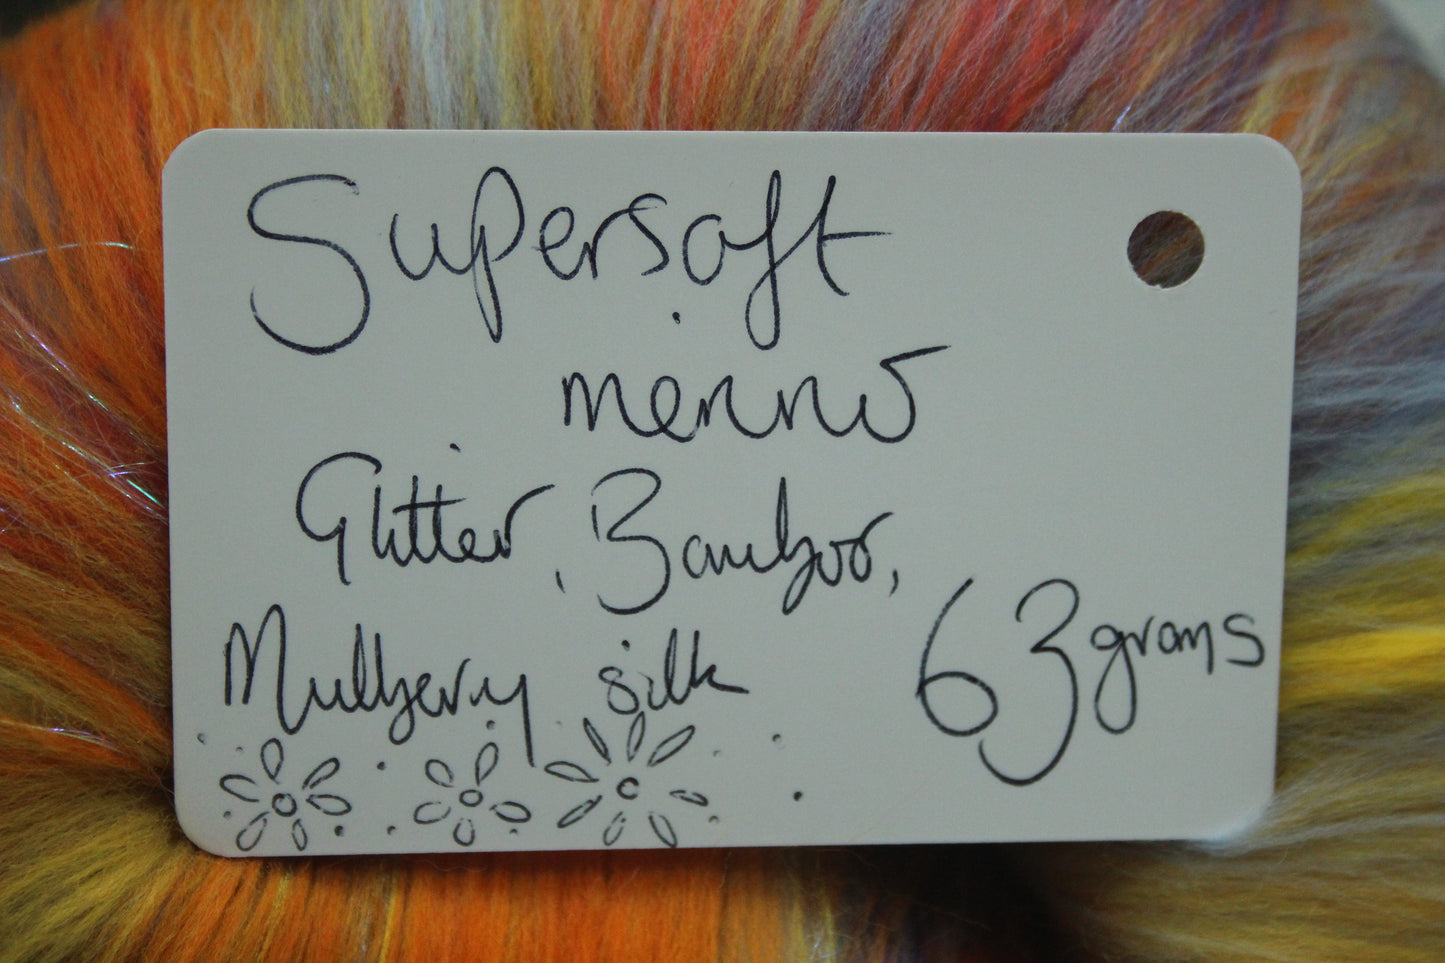 Supersoft
merino
Glitter, Bamboo,
Mulberry silk
63 grams